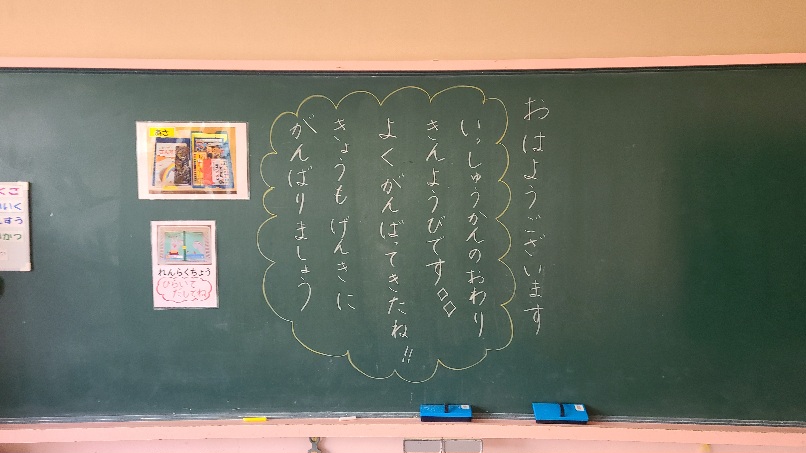 おはようございます
いっしゅうかんのおわり
きんようびです◇◇
よくがんばってきたね!!
きょうもげんきに
がんばりましょう
あさ
れんらくちょう
ひらいて
だしてね